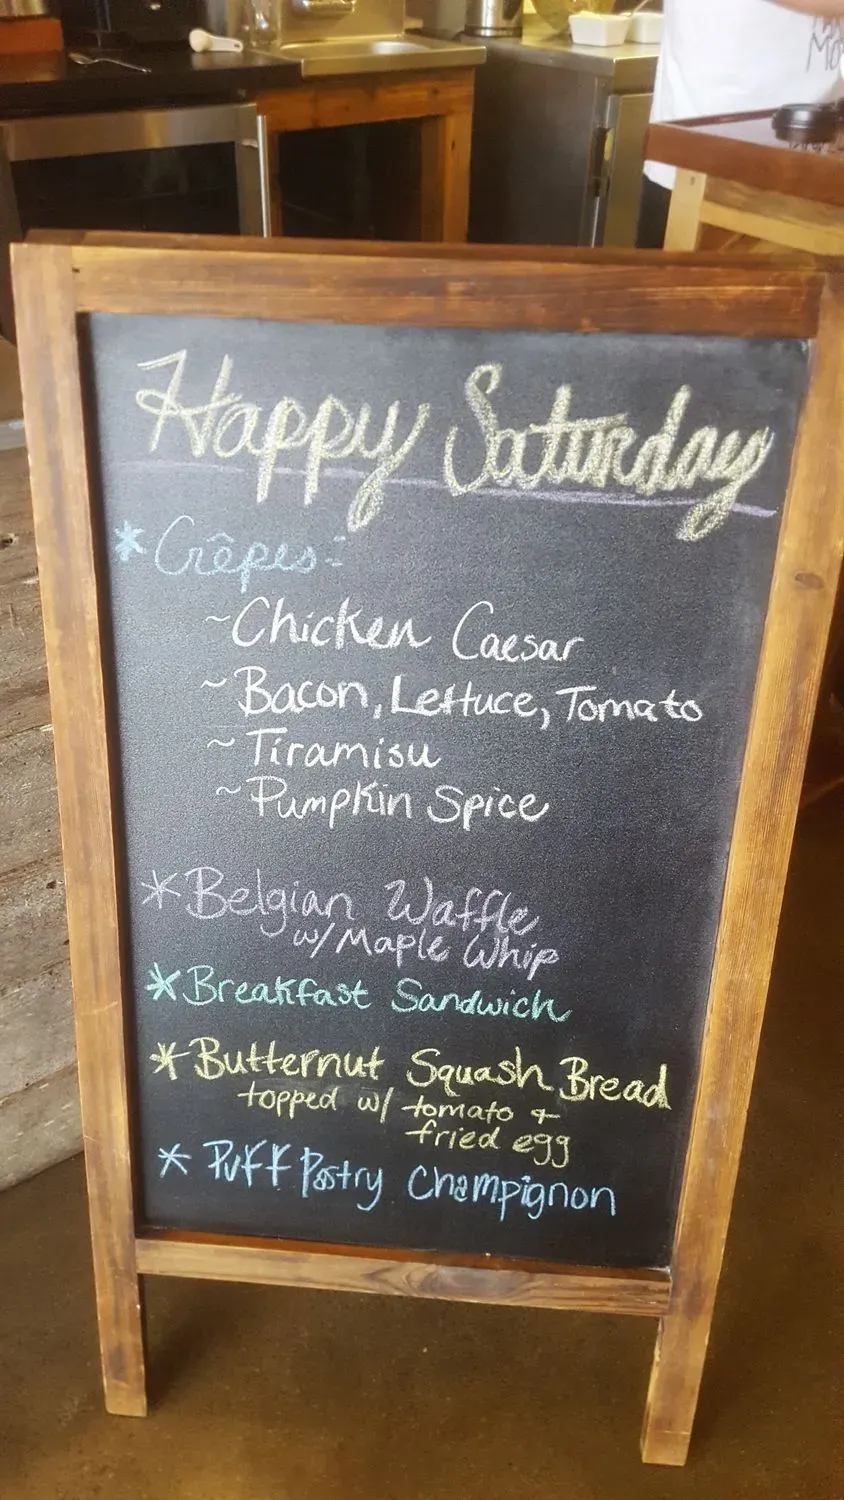 Happy Saturday
* Crêpes:
~Chicken Caesar
~Bacon, Lettuce, Tomato
~Tiramisu
~Pumpkin Spice
*Belgian Waffle
w/Maple Whip
*Breakfast Sandwich
*Butternut Squash Bread
topped w/ tomato +
fried egg
* Puff Pastry Champignon